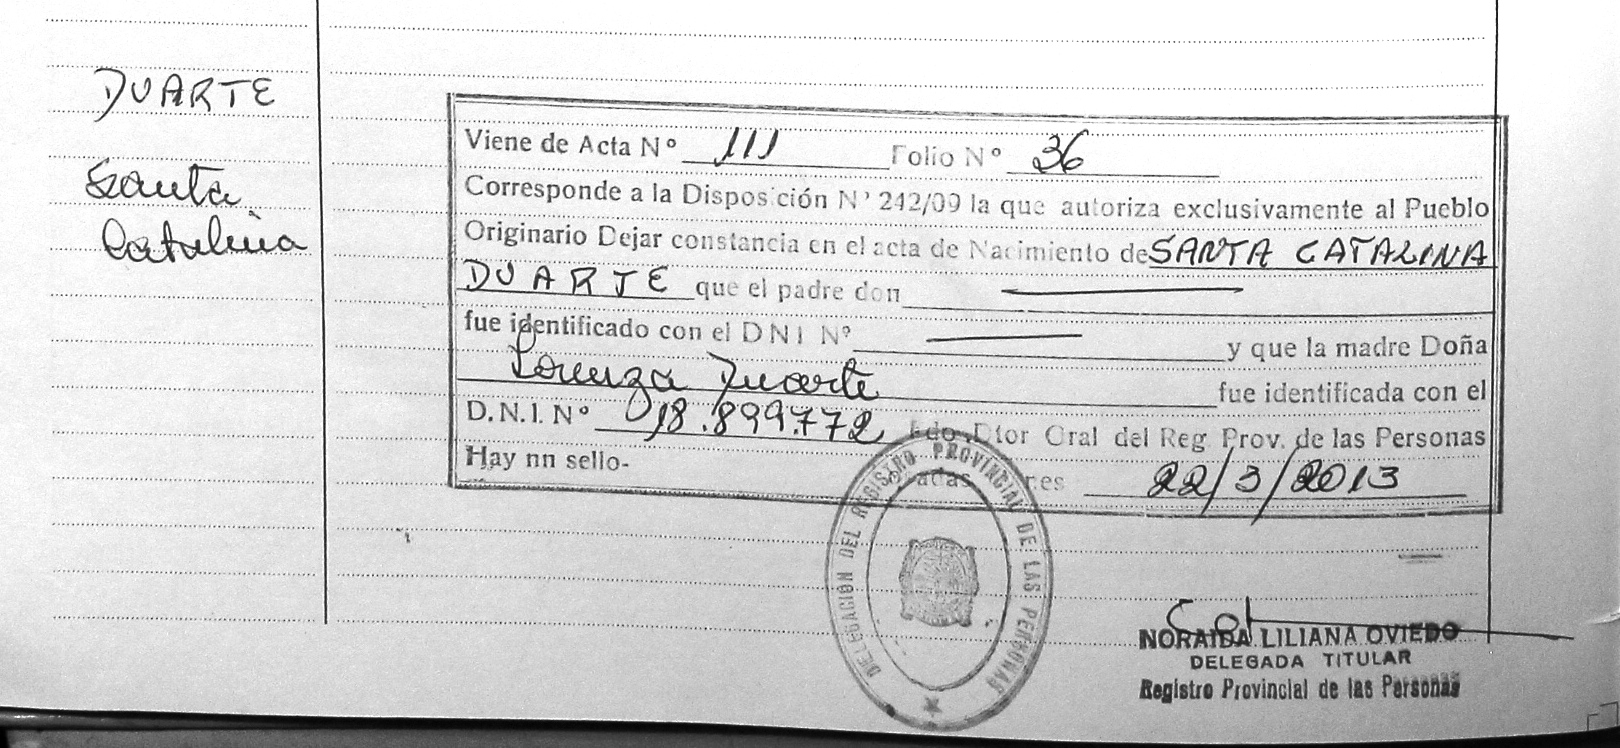 DUARTE
Santa
Catalina
Viene de Acta Nº 111 Folio Nº 36
Corresponde a la Disposición Nº 242/09 la que autoriza exclusivamente al Pueblo
Originario Dejar constancia en el acta de Nacimiento de SANTA CATALINA
DUARTE que el padre don
fue identificado con el DNI Nº y que la madre Doña
Lorenza Duarte fue identificada con el
D.N.I. Nº 18.899.772 Fdo. Dtor Gral del Reg Prov. de las Personas
Hay nn sello- 22/3/2013
DELEGACIÓN DEL REGISTRO PROVINCIAL DE LAS PERSONAS
NORAIDA LILIANA OVIEDO
DELEGADA TITULAR
Registro Provincial de las Personas